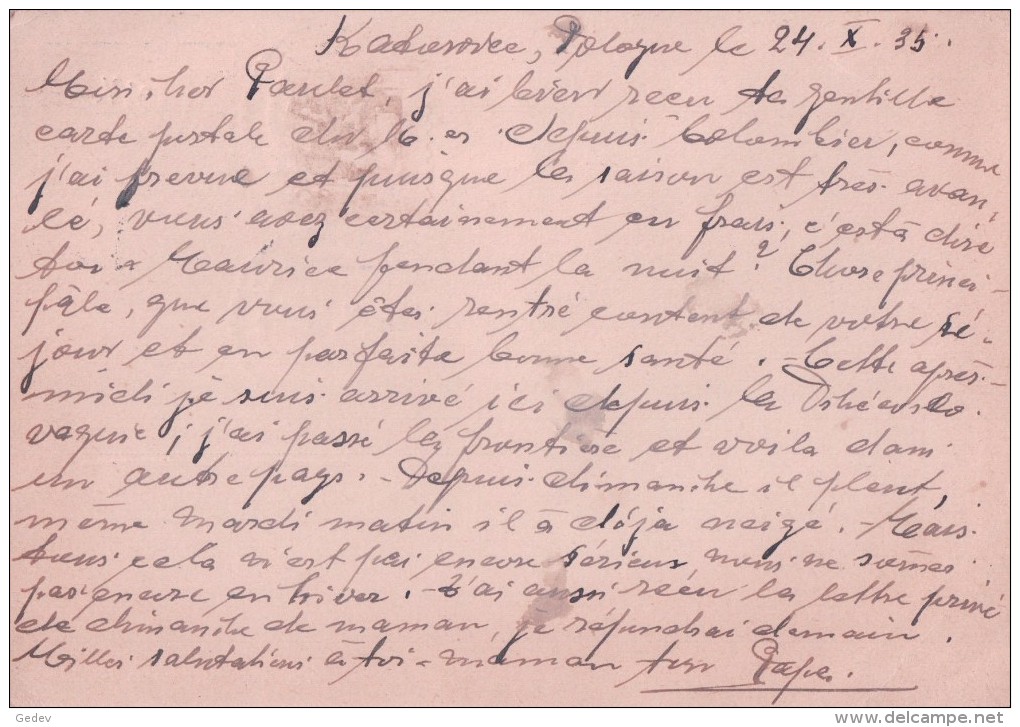 Katowice, Pologne le 24. X. 35.
Mon cher Paulet, j'ai bien recu ta gentille
carte postale du 16 er depuis Colombier, comme
j'ai prevue et puisque la saison est très avan-
cé, vous avez certainement eu frais, c'est à dire
toi Maurice pendant la nuit? Chose princi-
pâle, que vous êtes rentré content de votre sé-
jour et en parfaite bonne santé. - Cette après-
midi je suis arrivé ici depuis la Tchécoslo-
vaquie; j'ai passé la frontière et voila dans
un autre pays. - Depuis dimanche il pleut,
même mardi matin il à déja neigé. - Mais
tous cela n'est pas encore sérieux nous ne sommes
pas encore en hiver. - J'ai aussi recu la lettre privé
de dimanche de maman, je répondrai demain.
Meilles salutations à toi - maman ton Papa.
Gedev
www.delcampe.net